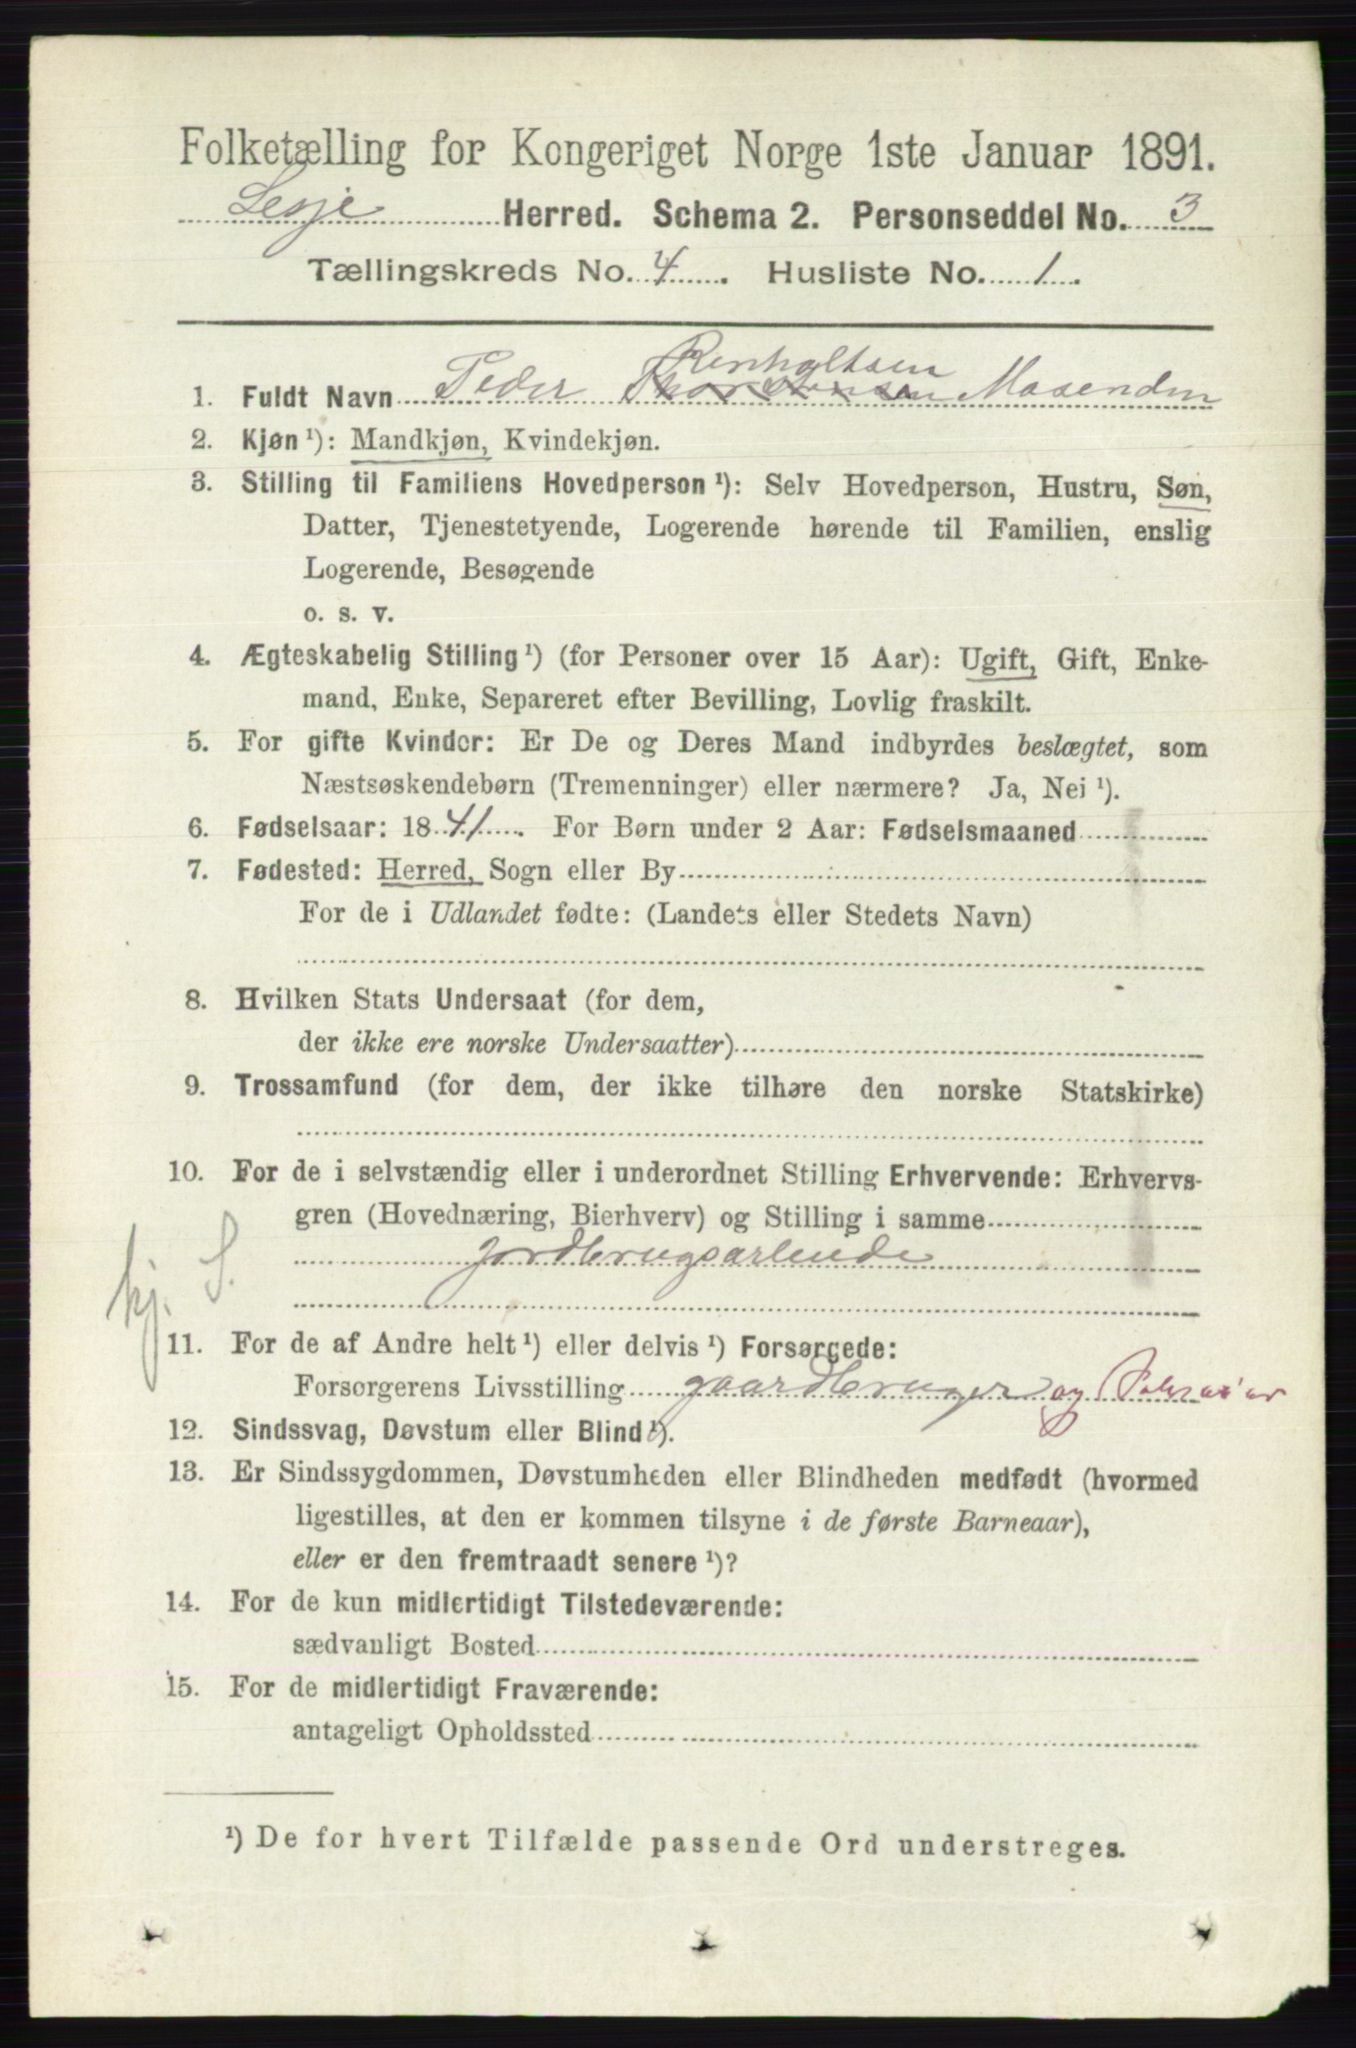 Folketælling for Kongeriget Norge 1ste Januar 1891.
Lesje Herred. Schema 2. Personseddel No. 3
Tællingskreds No. 4. Husliste No. 1.
Renholtsen
1. Fuldt Navn Peder Mosenden
2. Kjøn ¹): Mandkjøn, Kvindekjøn.
3. Stilling til Familiens Hovedperson ¹): Selv Hovedperson, Hustru, Søn,
Datter, Tjenestetyende, Logerende hørende til Familien, enslig
Logerende, Besøgende
o. s. v.
4. Ægteskabelig Stilling ¹) (for Personer over 15 Aar): Ugift, Gift, Enke-
mand, Enke, Separeret efter Bevilling, Lovlig fraskilt.
5. For gifte Kvinder: Er De og Deres Mand indbyrdes beslægtet, som
Næstsøskendebørn (Tremenninger) eller nærmere? Ja, Nei ¹).
6. Fødselsaar: 1841. For Børn under 2 Aar: Fødselsmaaned
7. Fødested: Herred, Sogn eller By
For de i Udlandet fødte: (Landets eller Stedets Navn)
8. Hvilken Stats Undersaat (for dem,
der ikke ere norske Undersaatter)
9. Trossamfund (for dem, der ikke tilhøre den norske Statskirke)
10. For de i selvstændig eller i underordnet Stilling Erhvervende: Erhvervs-
gren (Hovednæring, Bierhverv) og Stilling i samme
Jordbrugsarbeide
kj. S.
11. For de af Andre helt ¹) eller delvis ¹) Forsørgede:
Forsørgerens Livsstilling gaardbruger og
12. Sindssvag, Døvstum eller Blind ¹).
13. Er Sindssygdommen, Døvstumheden eller Blindheden medfødt (hvormed
ligestilles, at den er kommen tilsyne i de første Barneaar),
eller er den fremtraadt senere ¹)?
14. For de kun midlertidigt Tilstedeværende:
sædvanligt Bosted
15. For de midlertidigt Fraværende:
antageligt Opholdssted
¹) De for hvert Tilfælde passende Ord understreges.